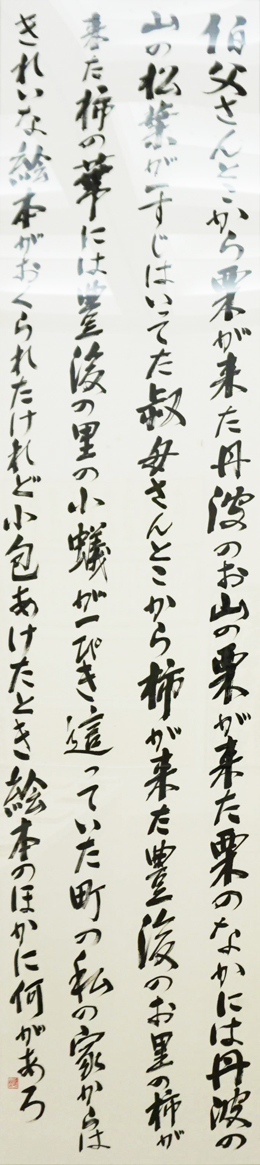 伯父さんとこから栗が来た丹波のお山の栗が来た栗のなかには丹波の
山の松葉が一すじはいてた叔母さんとこから柿が来た豊後のお里の柿が
来た柿の華には豊後の里の小蟻が一ぴき這っていた町の私の家からは
きれいな絵本がおくられたけれど小包あけたとき絵本のほかに何があろ